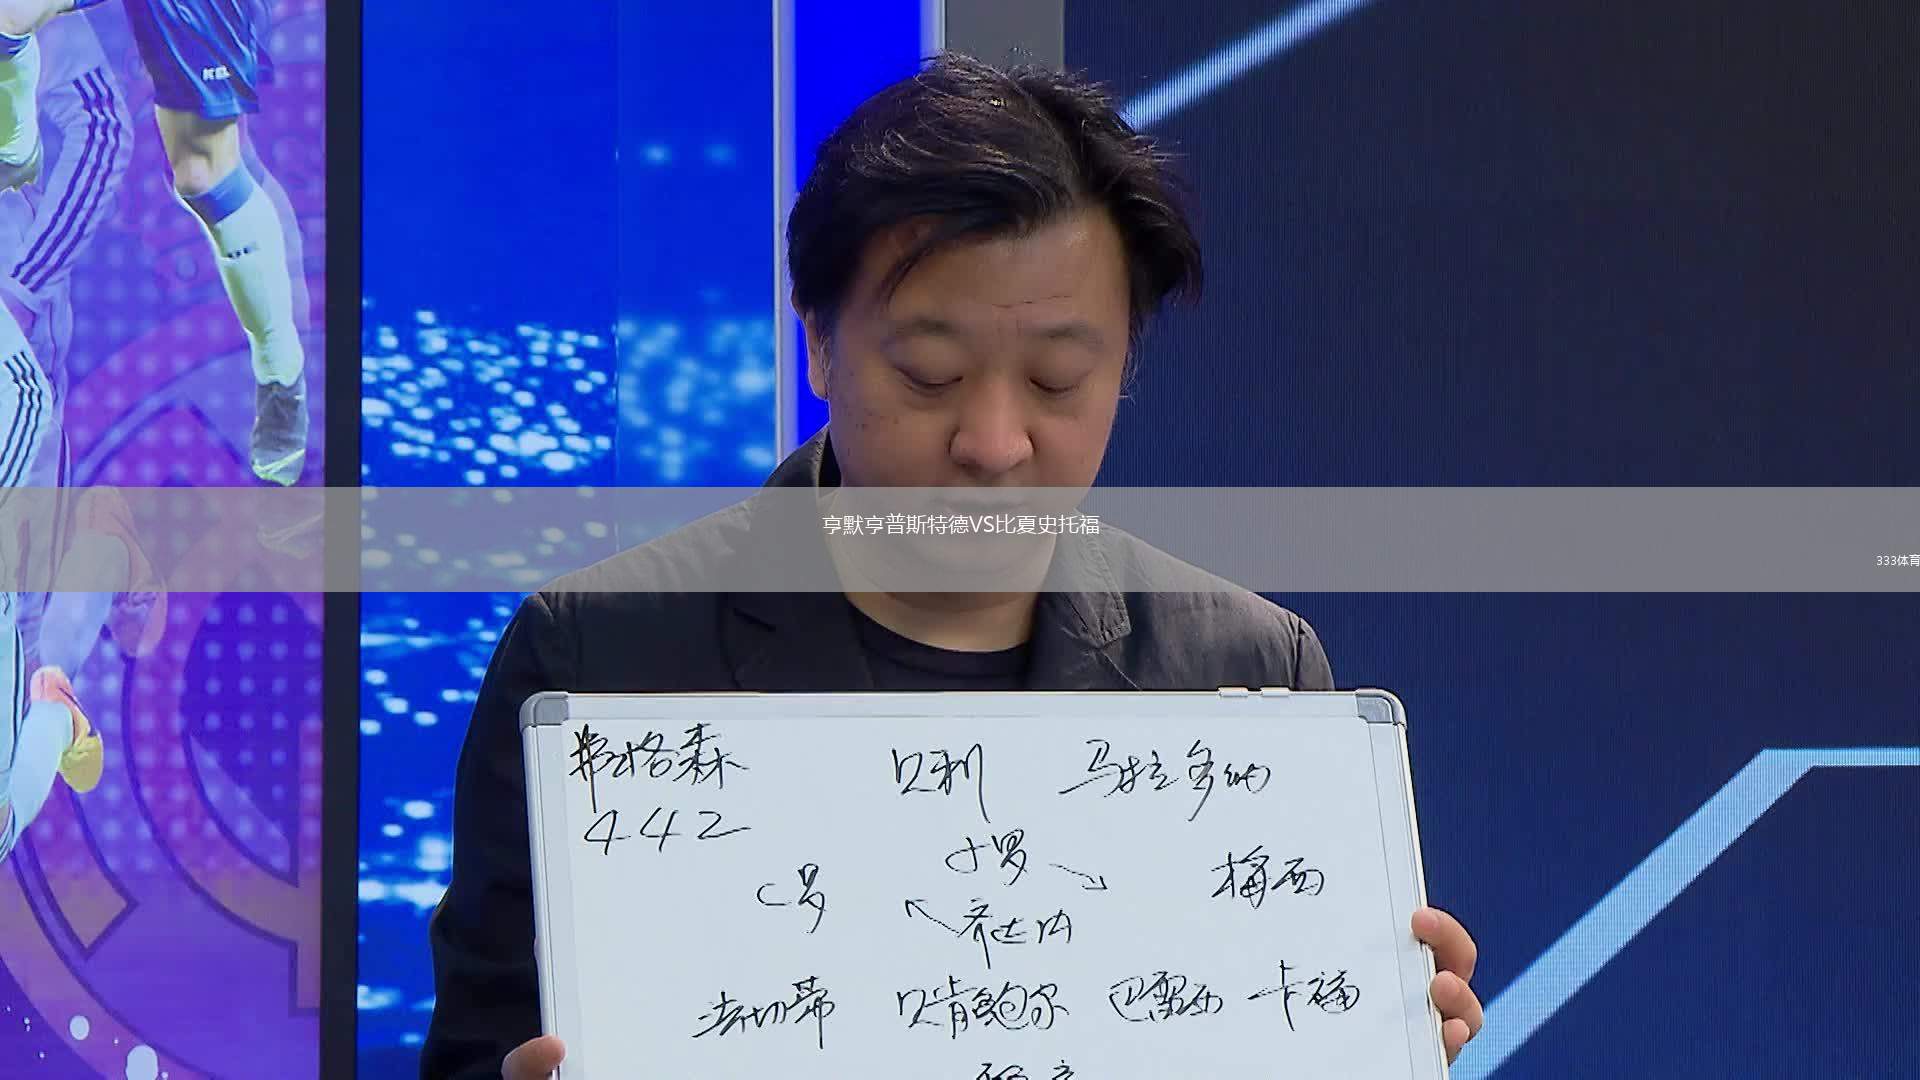 KELME
亨默亨普斯特德VS比夏史托福
333体育
弗格森
贝利
马拉多纳
442
小罗
C罗
梅西
齐达内
法切蒂
贝肯鲍尔
巴雷西
卡福